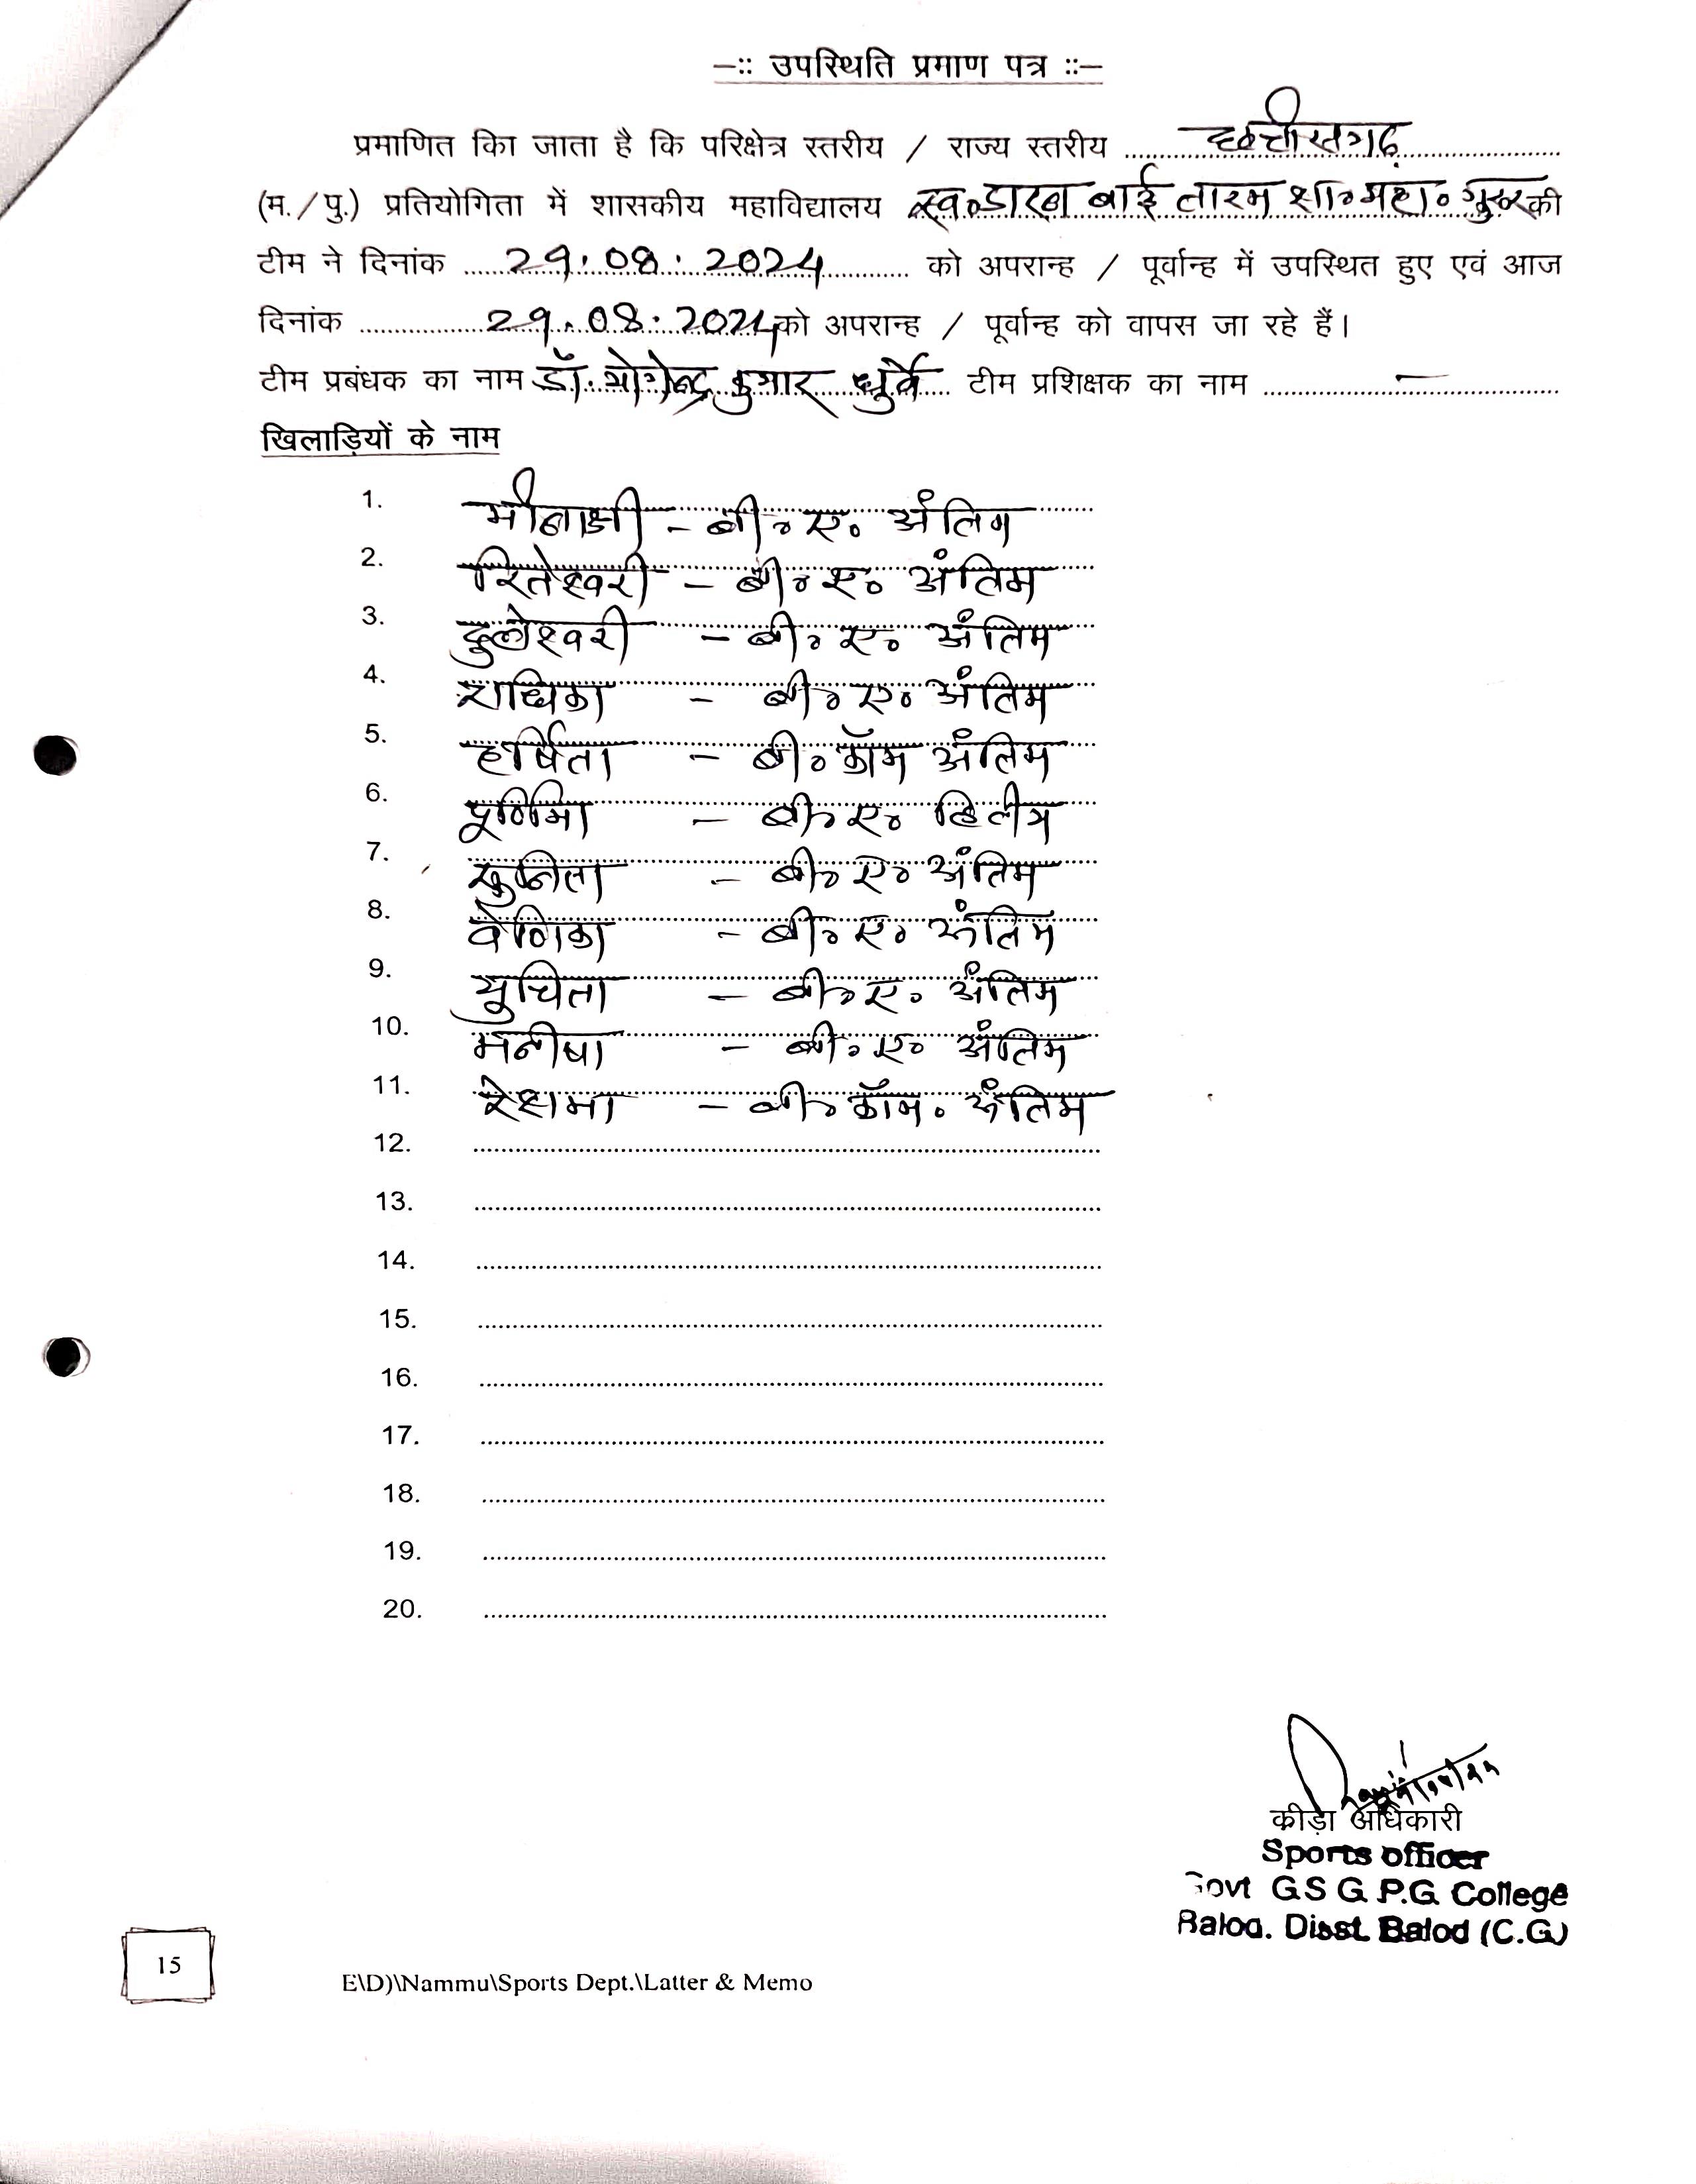 –:: उपस्थिति प्रमाण पत्र ::–
प्रमाणित किा जाता है कि परिक्षेत्र स्तरीय / राज्य स्तरीय छत्तीसगढ़
(म./पु.) प्रतियोगिता में शासकीय महाविद्यालय स्व॰ बाई तारम शा॰महा॰ गुरूर की
टीम ने दिनांक 29.08.2024 को अपरान्ह / पूर्वान्ह में उपस्थित हुए एवं आज
दिनांक 29.08.2024 को अपरान्ह / पूर्वान्ह को वापस जा रहे हैं।
टीम प्रबंधक का नाम डॉ. योगेन्द्र कुमार धुर्वे टीम प्रशिक्षक का नाम –
खिलाड़ियों के नाम
1. मीनाक्षी – बी॰ए॰ अंतिम
2. रितेश्वरी – बी॰ए॰ अंतिम
3. दुलेश्वरी – बी॰ए॰ अंतिम
4. राधिका – बी॰ए॰ अंतिम
5. हर्षिता – बी॰कॉम अंतिम
6. पूर्णिमा – बी॰ए॰ द्वितीय
7. सुनिता – बी॰ए॰ अंतिम
8. वेणिका – बी॰ए॰ अंतिम
9. – बी॰ए॰ अंतिम
10. मनीषा – बी॰ए॰ अंतिम
11. रेशमा – बी॰कॉम॰ अंतिम
12.
13.
14.
15.
16.
17.
18.
19.
20.
कीड़ा अधिकारी
Sports officer
Govt G S G P.G. College
Balod. Disst. Balod (C.G.)
15
E\D)\Nammu\Sports Dept.\Latter & Memo